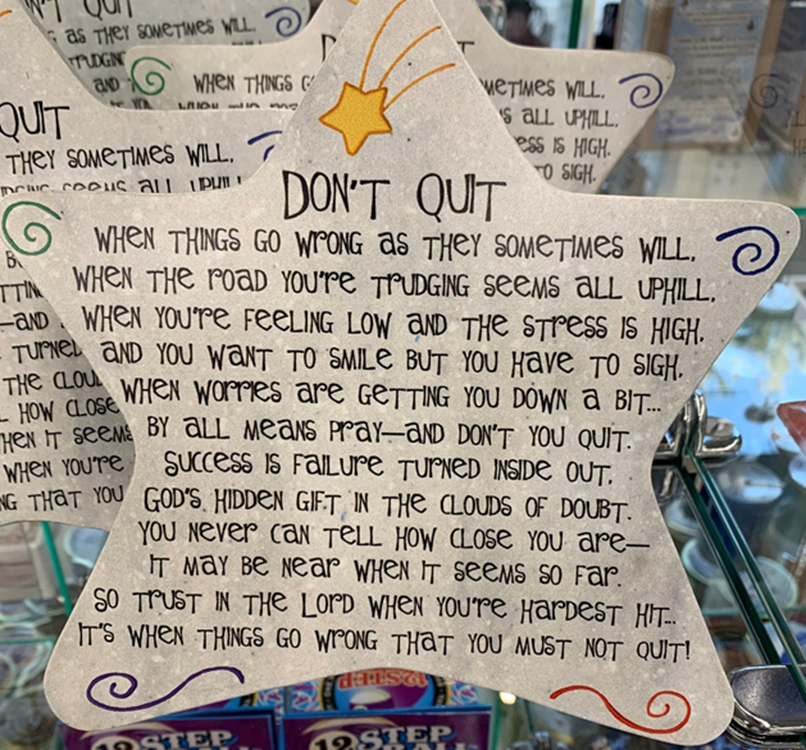 DON'T QUIT
WHEN THINGS GO WRONG AS THEY SOMETIMES WILL,
WHEN THE ROAD YOU'RE TRUDGING SEEMS ALL UPHILL,
WHEN YOU'RE FEELING LOW AND THE STRESS IS HIGH,
AND YOU WANT TO SMILE BUT YOU HAVE TO SIGH,
WHEN WORRIES ARE GETTING YOU DOWN A BIT...
BY ALL MEANS PRAY—AND DON'T YOU QUIT.
SUCCESS IS FAILURE TURNED INSIDE OUT,
GOD'S HIDDEN GIFT IN THE CLOUDS OF DOUBT.
YOU NEVER CAN TELL HOW CLOSE YOU ARE—
IT MAY BE NEAR WHEN IT SEEMS SO FAR.
SO TRUST IN THE LORD WHEN YOU'RE HARDEST HIT...
IT'S WHEN THINGS GO WRONG THAT YOU MUST NOT QUIT!
QUIT
AS THEY SOMETIMES WILL,
TRUDGING
AND
WHEN THINGS
SOMETIMES WILL,
ALL UPHILL,
IS HIGH,
TO SIGH,
QUIT
THEY SOMETIMES WILL,
SEEMS ALL UPHILL
—AND
TURNED
THE
HOW CLOSE
WHEN IT SEEMS
WHEN YOU'RE
THAT YOU
12 STEP
12 STEP
12 STEP